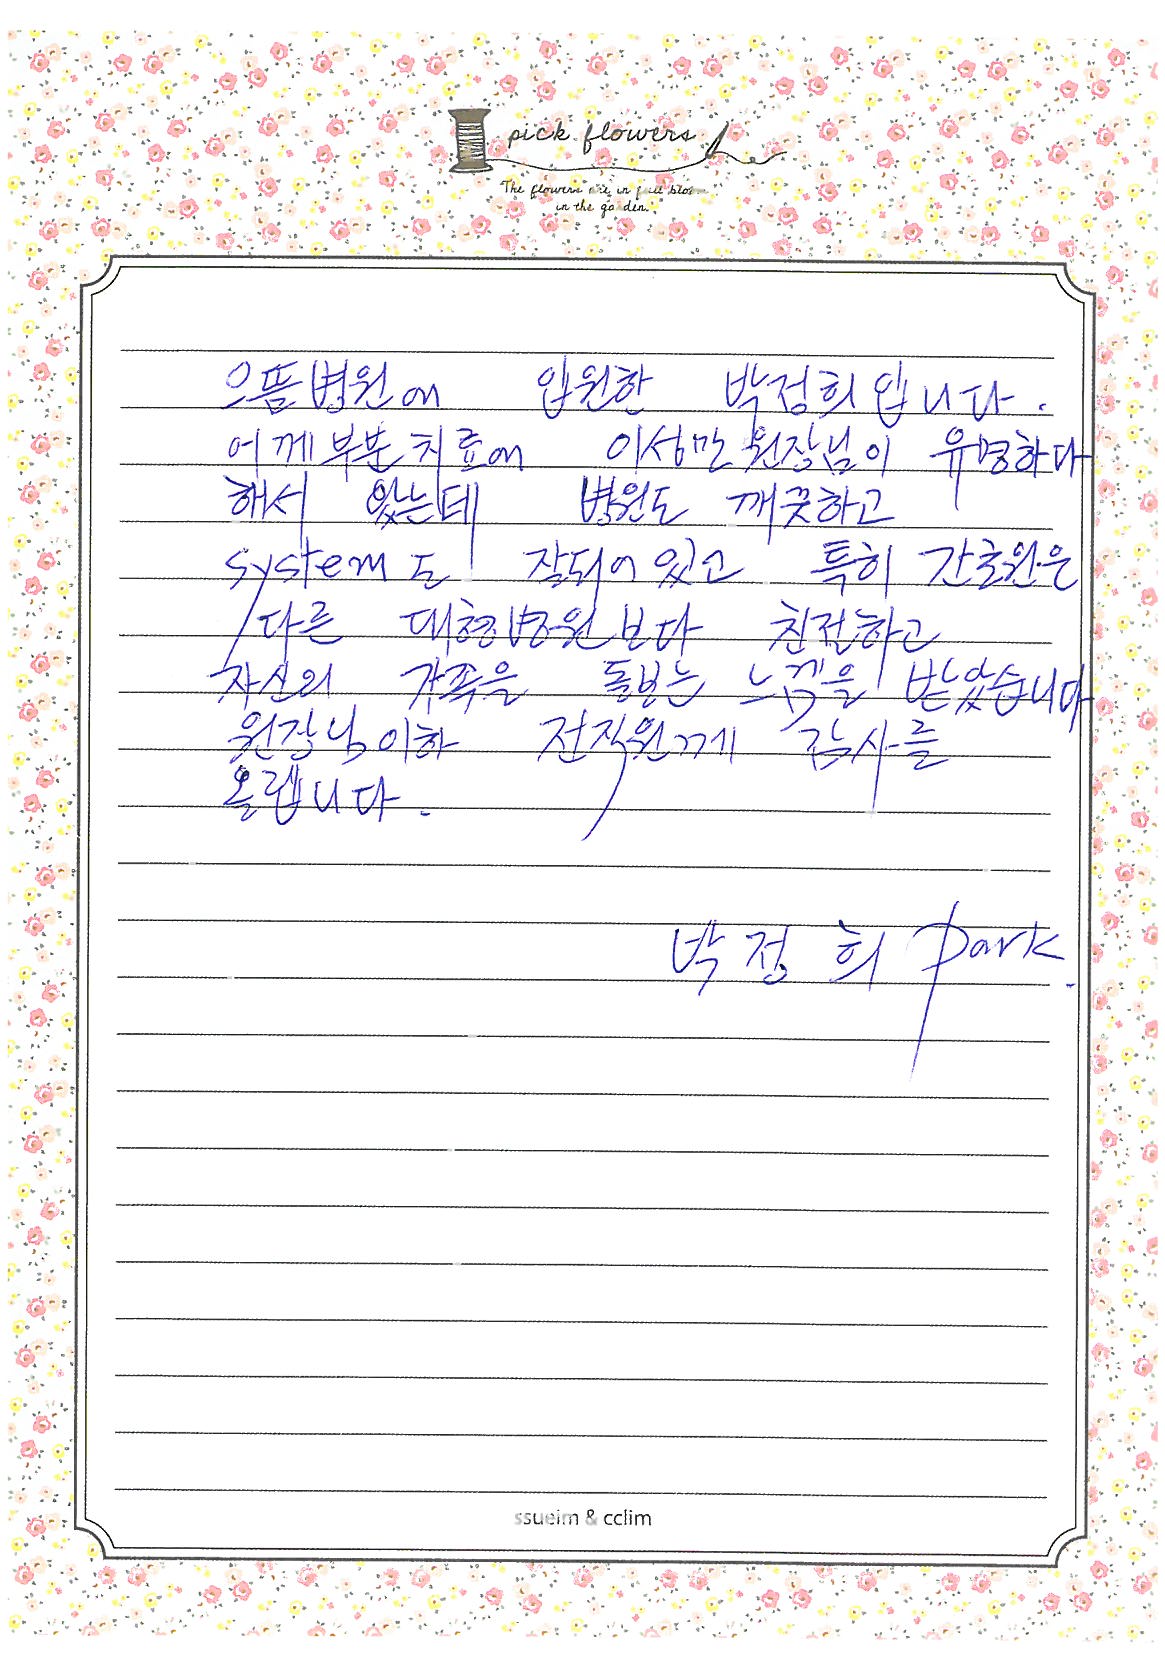 pick flowers
The flowers are in full blos
in the ga den.
으뜸병원에 입원한 박정희입니다.
어께부분치료에 이성만원장님이 유명하다
해서 왔는데 병원도 깨끗하고
system도 잘되어있고 특히 간호원은
다른 대형병원보다 친절하고
자신의 가족을 돌보는 느낌을 받았습니다
원장님이하 전직원께 감사를
올립니다.
박정희 Park.
ssueim & cclim